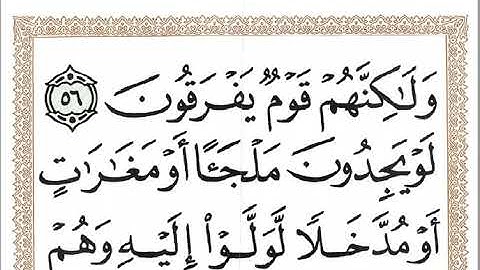 وَلَٰكِنَّهُمْ قَوْمٌ يَفْرَقُونَ ٥٦
لَوْ يَجِدُونَ مَلْجَـًٔا أَوْ مَغَٰرَٰتٍ
أَوْ مُدَّخَلًا لَّوَلَّوْا۟ إِلَيْهِ وَهُمْ